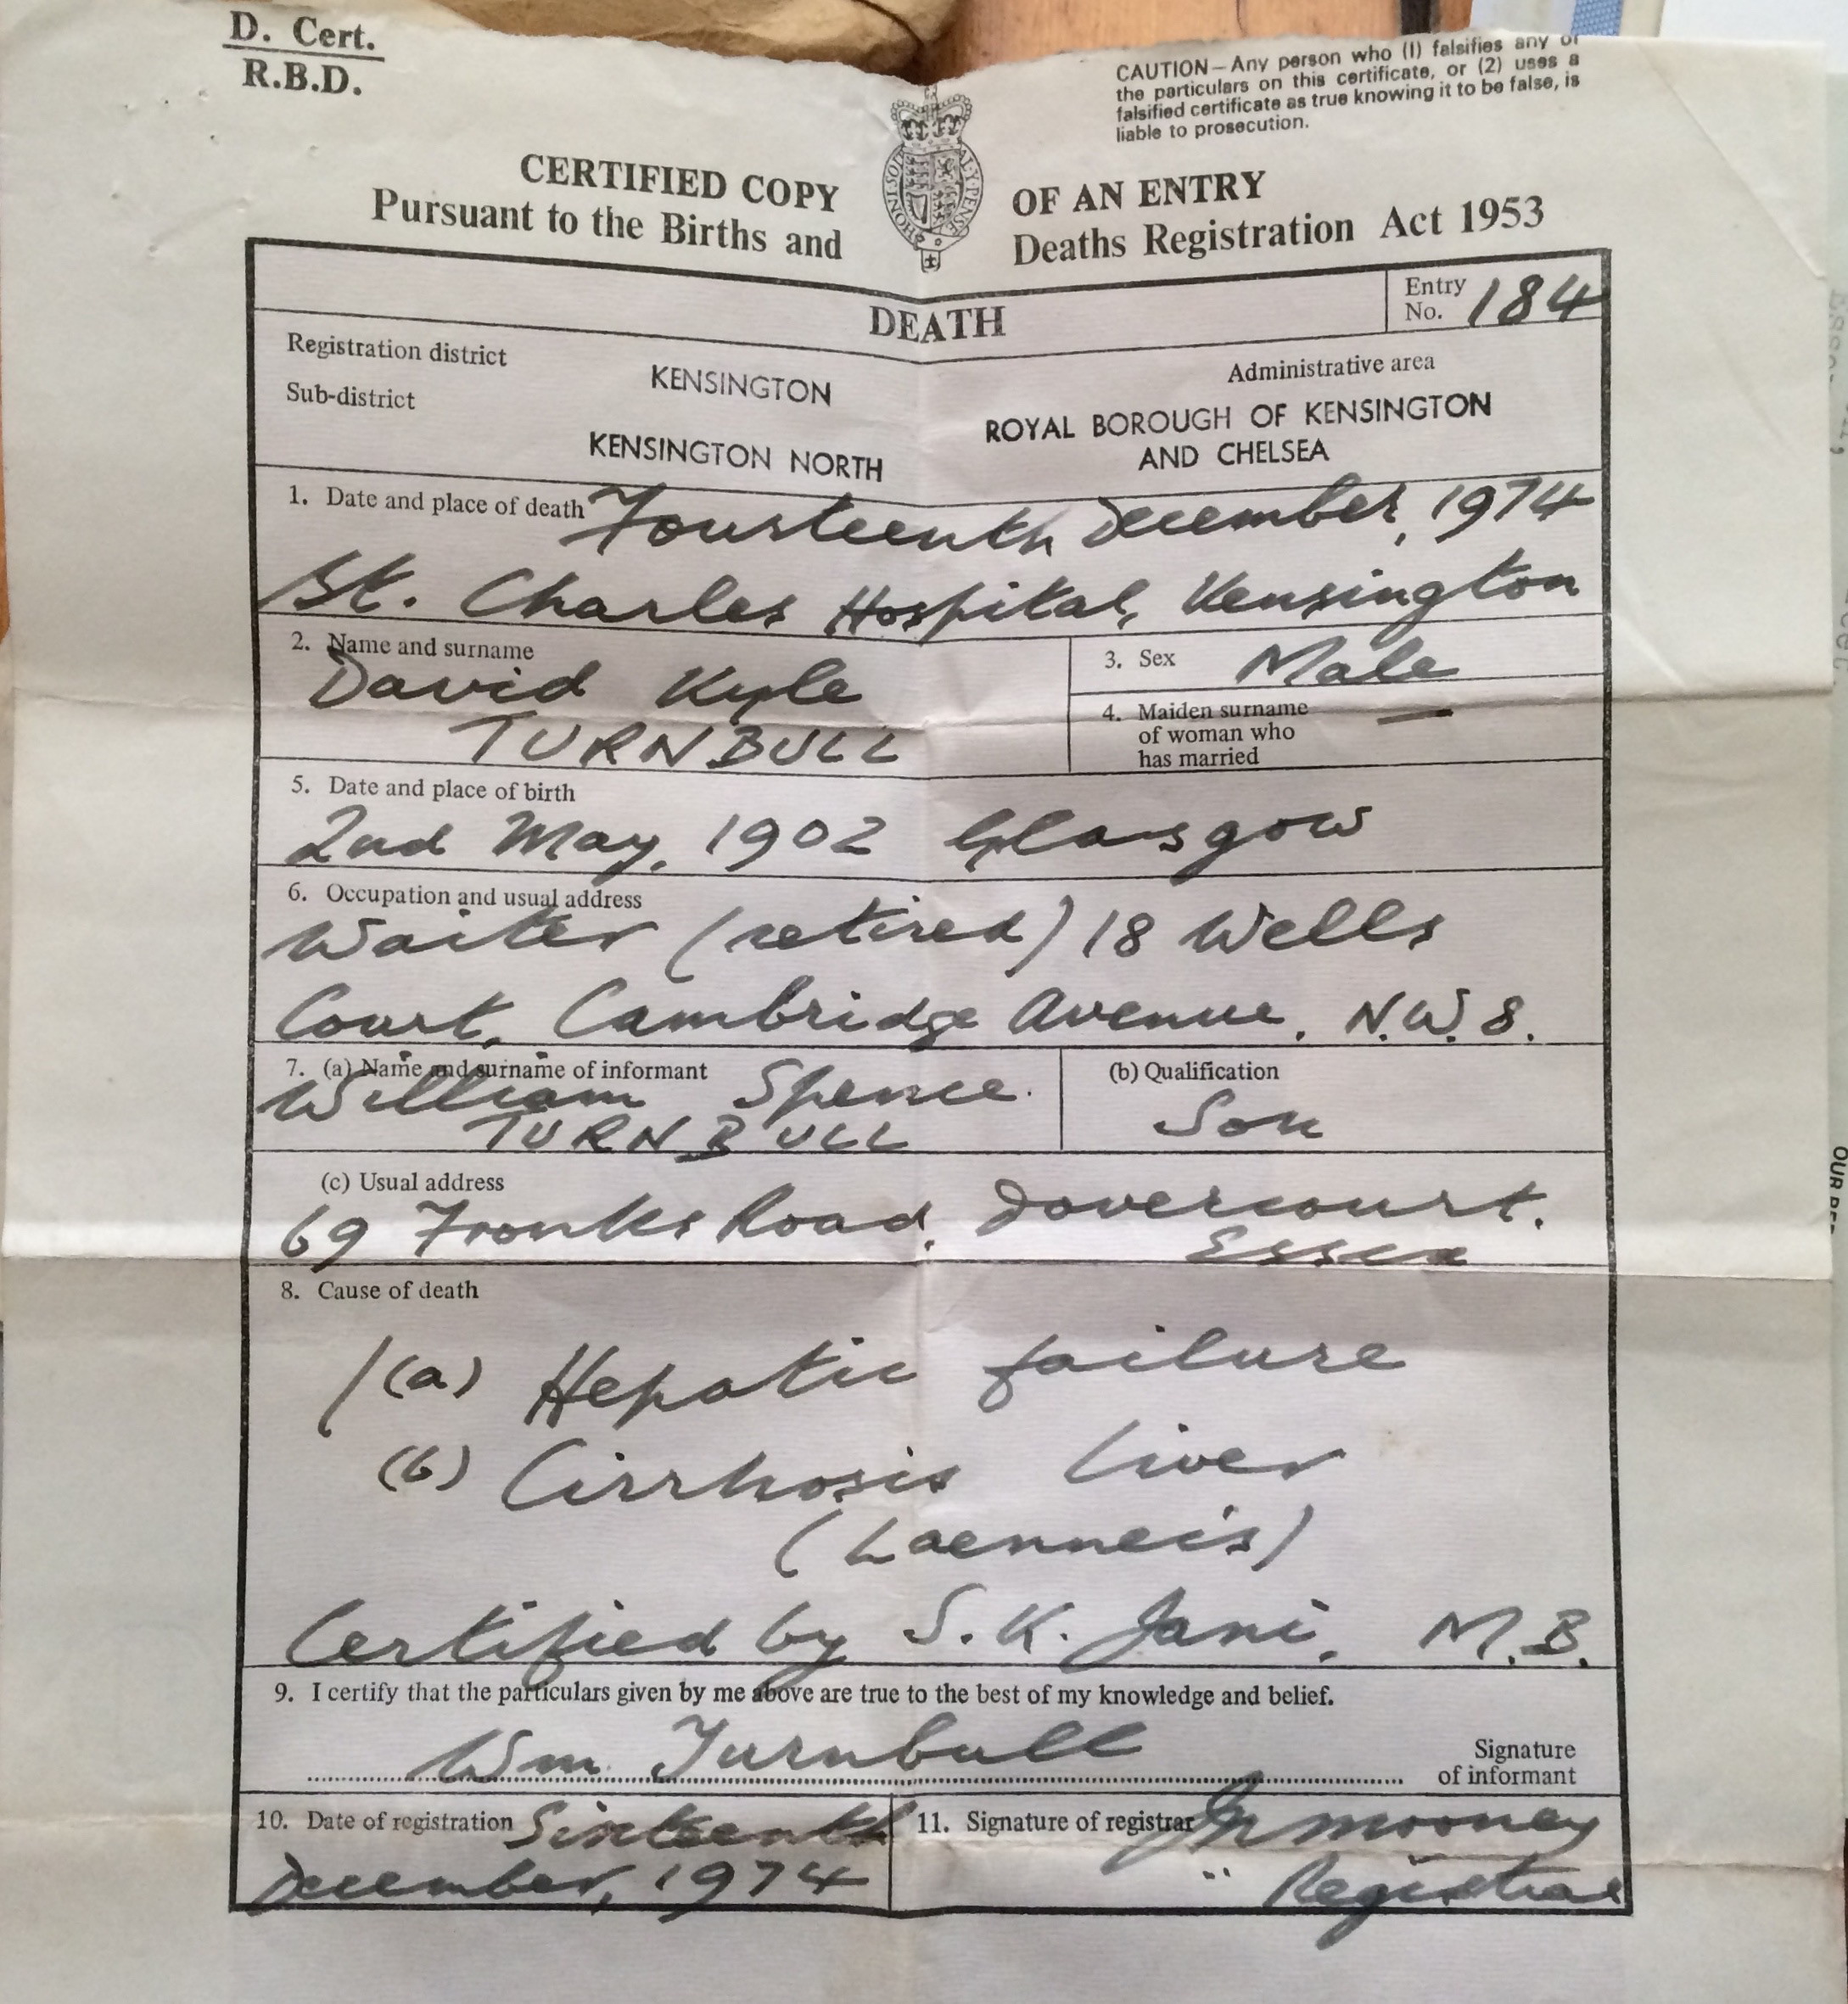 D. Cert.
R.B.D.
CAUTION—Any person who (1) falsifies any of
the particulars on this certificate, or (2) uses a
falsified certificate as true knowing it to be false, is
liable to prosecution.
CERTIFIED COPY OF AN ENTRY
Pursuant to the Births and Deaths Registration Act 1953
DEATH
Entry No. 184
Registration district KENSINGTON
Administrative area
Sub-district
ROYAL BOROUGH OF KENSINGTON
KENSINGTON NORTH AND CHELSEA
1. Date and place of death Fourteenth December, 1974
St. Charles Hospital, Kensington
2. Name and surname
David Kyle
TURNBULL
3. Sex Male
4. Maiden surname —
of woman who
has married
5. Date and place of birth
2nd May, 1902 Glasgow
6. Occupation and usual address
Waiter (retired) 18 Wells
Court, Cambridge Avenue, N.W.8.
7. (a) Name and surname of informant
William Spence
TURNBULL
(b) Qualification
Son
(c) Usual address
69 Fronks Road, Dovercourt.
Essex
8. Cause of death
1(a) Hepatic failure
(b) Cirrhosis liver
(Laennec's)
Certified by S. K. Jani, M.B.
9. I certify that the particulars given by me above are true to the best of my knowledge and belief.
Wm. Turnbull
Signature
of informant
10. Date of registration Sixteenth
December, 1974
11. Signature of registrar Mooney
Registrar
OUR